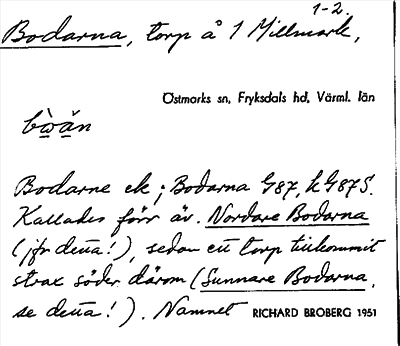 1-2.
Bodarna, torp å 1 Millmark,
Östmarks sn, Fryksdals hd, Värml. län
Bodarne ek; Bodarna G87, LG87S.
Kallades förr äv. Nordare Bodarna
(jfr detta!), sedan ett torp tillkommit
strax söder därom (Sunnare Bodarna,
se detta!). Namnet RICHARD BROBERG 1951